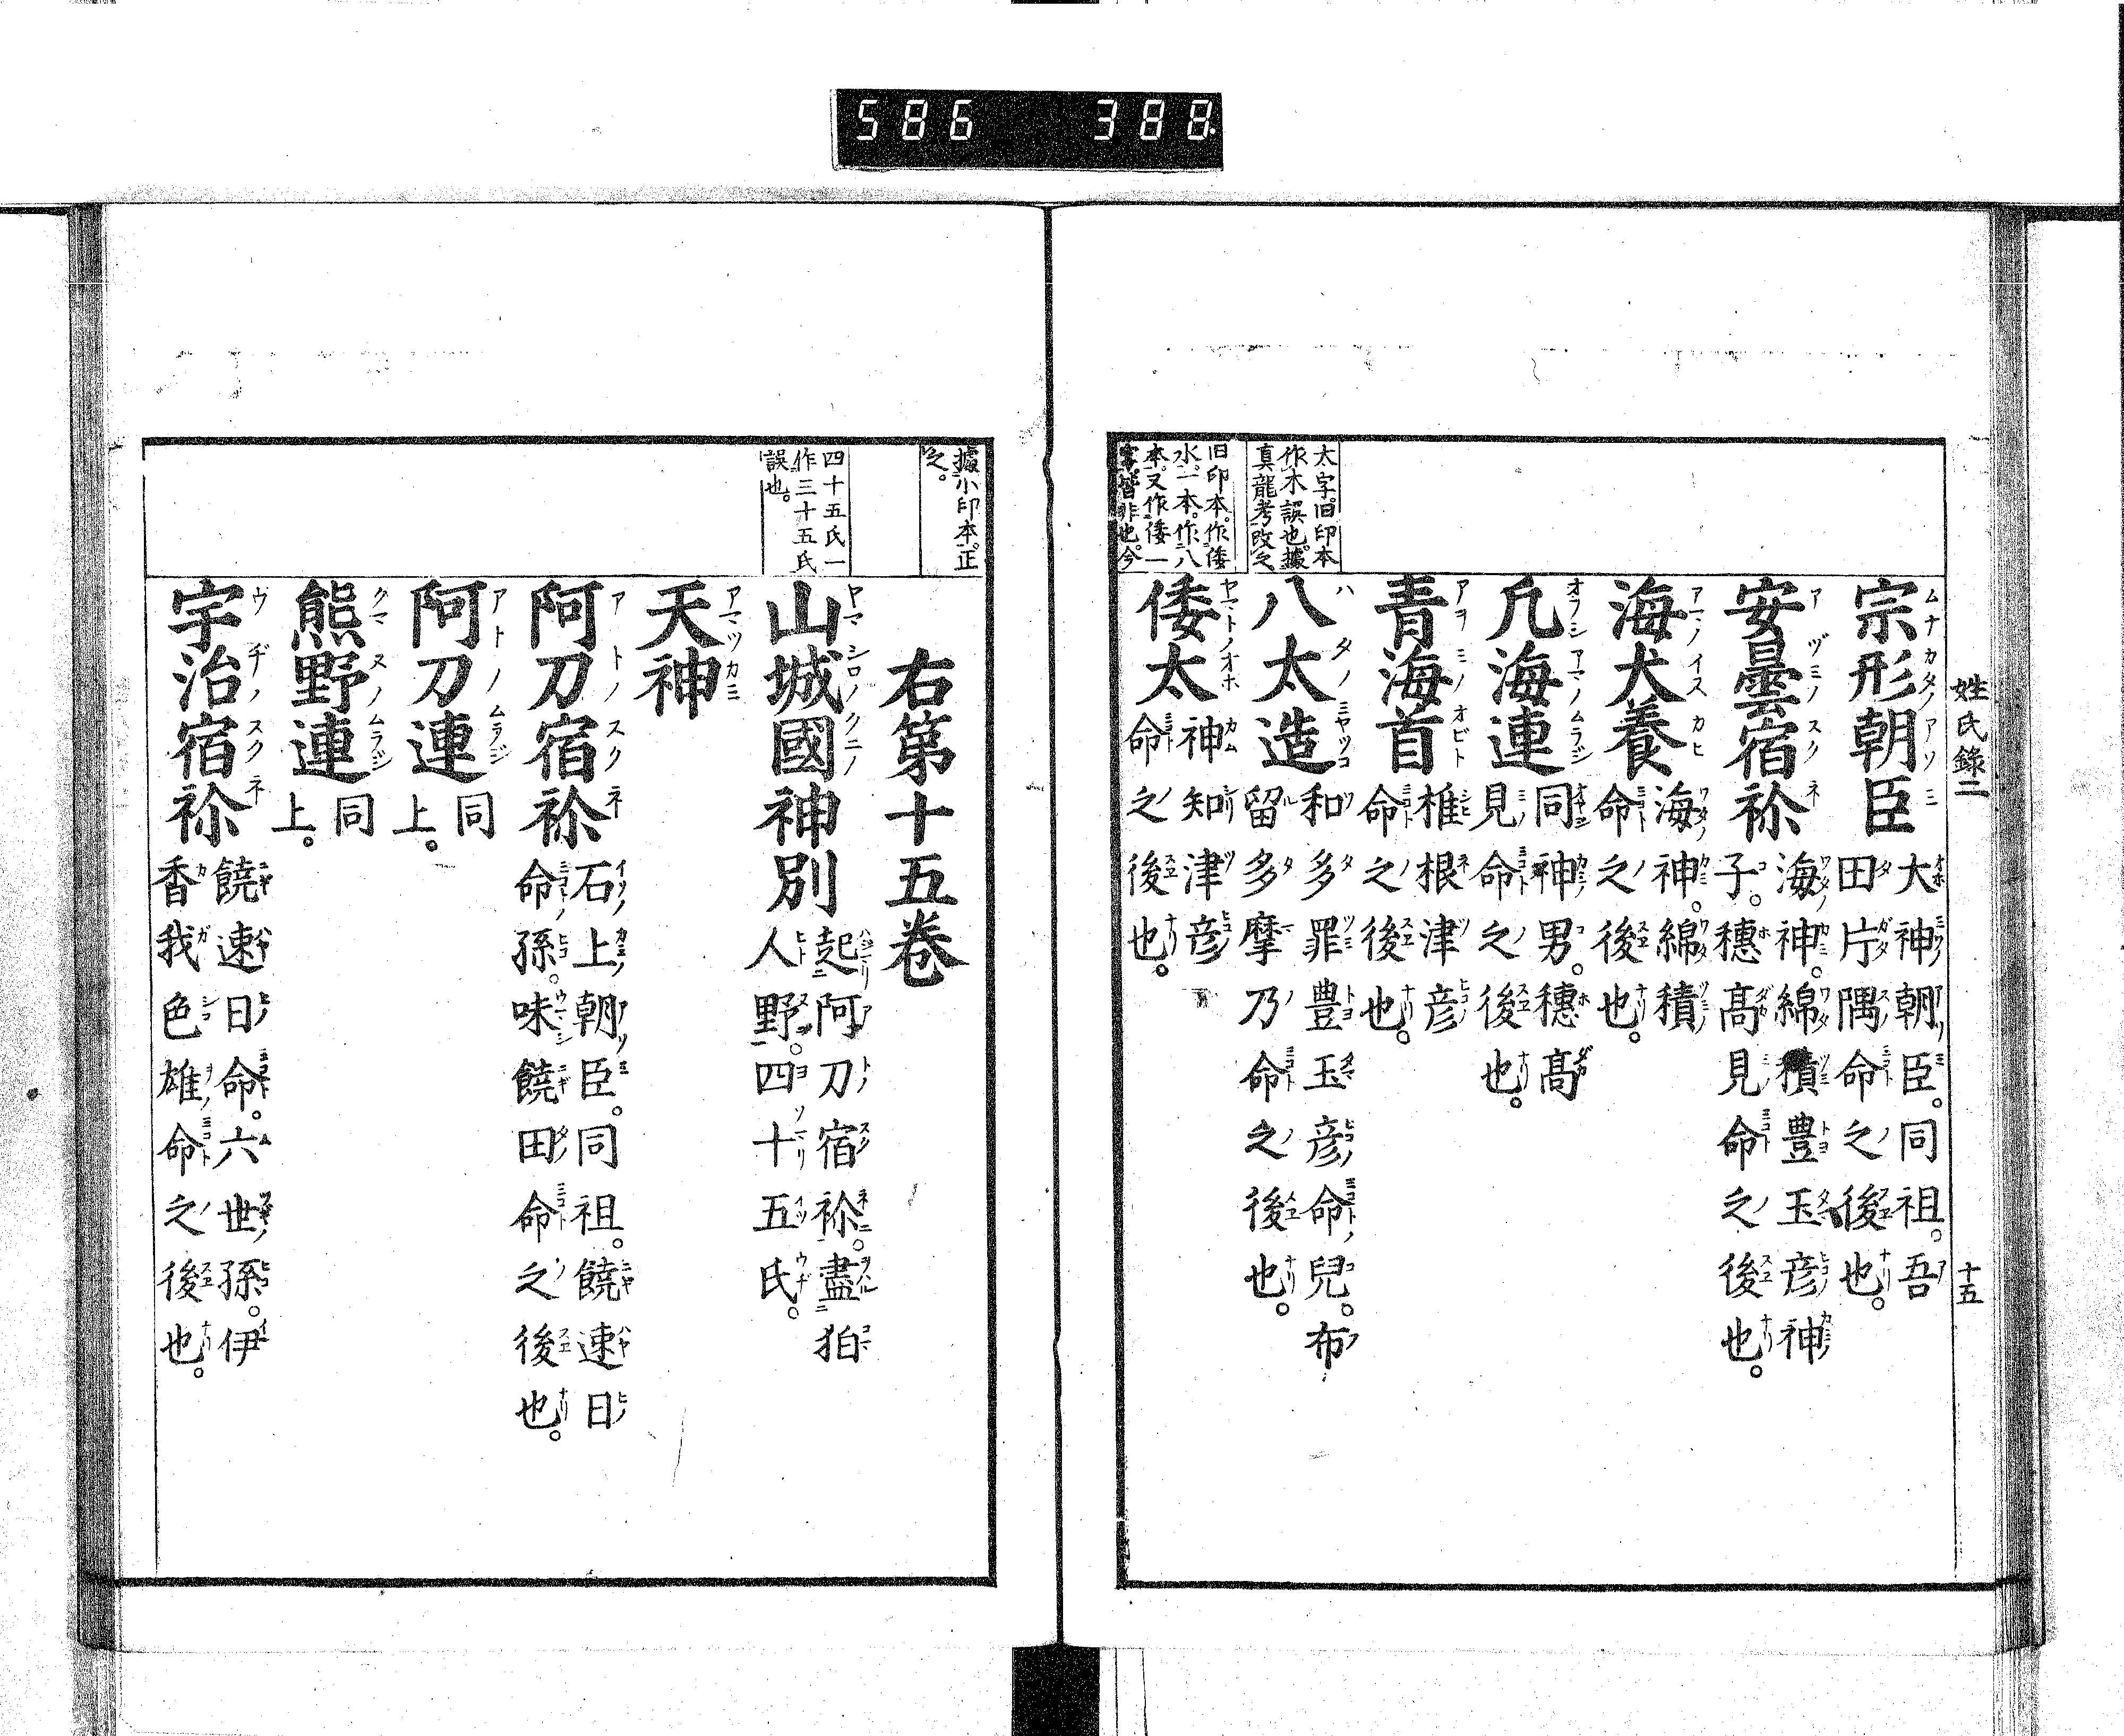 586 388
姓氏錄二 十五
太字。旧印本
作木誤也。據
真龍考改之
旧印本。作倭
水。一本。作八
本。又作倭一
字。皆非也。今
宗形朝臣
大神朝臣。同祖。吾
田片隅命之後也。
安曇宿祢
海神。綿積豊玉彦神
子。穗高見命之後也。
海犬養
海神。綿積
命之後也。
凡海連
同神男。穗高
見命之後也。
青海首
椎根津彦
命之後也。
八太造
和多罪豊玉彦命兒。布
留多摩乃命之後也。
倭太
神知津彦
命之後也。
據小印本。正
之。
四十五氏一
作三十五氏
誤也。
右第十五巻
山城國神別
起阿刀宿祢。盡狛
人野。四十五氏。
天神
阿刀宿祢
石上朝臣。同祖。饒速日
命孫。味饒田命之後也。
阿刀連
同
上。
熊野連
同
上。
宇治宿祢
饒速日命。六世孫。伊
香我色雄命之後也。